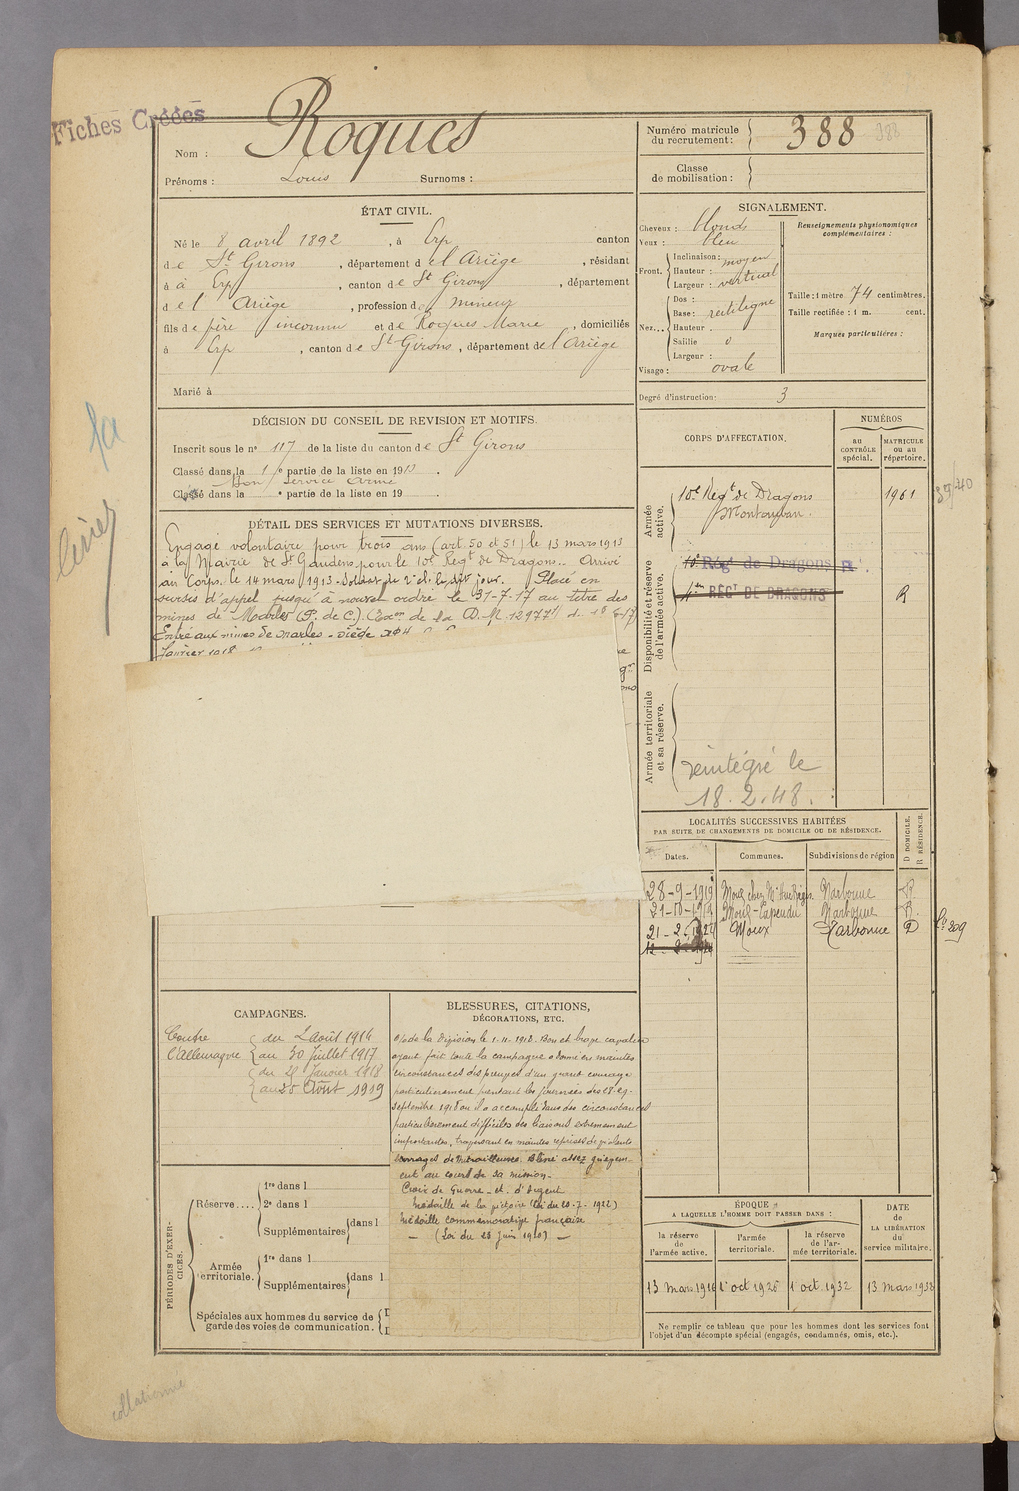 Fiches Créées
Nom : Roques
Prénoms : Louis Surnoms :
Numéro matricule du recrutement : 388 388
Classe de mobilisation :
ÉTAT CIVIL.
Né le 8 avril 1892, à Erp canton
de St Girons, département de l'Ariège, résidant
à à Erp, canton de St Girons, département
de l' Ariège, profession de mineur
fils de père inconnu et de Roques Marie, domiciliés
à Erp, canton de St Girons, département de l'Ariège
Marié à
SIGNALEMENT.
Cheveux : blonds
Yeux : bleu
Front.
Inclinaison : moyen
Hauteur : vertical
Largeur :
Nez...
Dos :
Base : rectiligne
Hauteur .
Saillie 0
Largeur :
Visage : ovale
Renseignements physionomiques complémentaires :
Taille : 1 mètre 74 centimètres.
Taille rectifiée : 1 m. cent.
Marques particulières :
Degré d'instruction : 3
DÉCISION DU CONSEIL DE REVISION ET MOTIFS.
Inscrit sous le n° 117 de la liste du canton de St Girons
Classé dans la 1re partie de la liste en 1913.
Bon Service Armé
Classé dans la e partie de la liste en 19 .
DÉTAIL DES SERVICES ET MUTATIONS DIVERSES.
Engagé volontaire pour trois ans (art. 50 et 51) le 13 mars 1913
à la Mairie de St Gaudens pour le 10e Regt de Dragons.. Arrivé
au Corps. le 14 mars 1913. Soldat de 2e cl. le dit jour. Placé en
sursis d'appel jusqu'à nouvel ordre le 31-7-17 au titre des
mines de Marles (P. de C.) (Exon de la D. M. 12977
Entré aux mines de Marles - siège
Janvier 1918
CORPS D'AFFECTATION.
NUMÉROS
au CONTRÔLE spécial.
MATRICULE ou au répertoire.
Armée active.
10e Regt de Dragons 1961
Montauban.
39/40
Disponibilité et réserve de l'armée active.
10e Régt de Dragons R
RÉGT DE DRAGONS R
Armée territoriale et sa réserve.
réintégré le
18.2.48.
LOCALITÉS SUCCESSIVES HABITÉES
PAR SUITE DE CHANGEMENTS DE DOMICILE OU DE RÉSIDENCE.
Dates. Communes. Subdivisions de région D DOMICILE. R RÉSIDENCE.
28-9-1919 Narbonne R
21-10-1919 Moux-Capendu Narbonne R.
21-2- Moux Narbonne D
CAMPAGNES.
Contre du 2 Août 1914
l'Allemagne au 30 Juillet 1917
du 21 Janvier 1918
au 25 Août 1919
BLESSURES, CITATIONS,
DÉCORATIONS, ETC.
o/ de la Division le 1-11-1918. Bon et brave cavalier
ayant fait toute la campagne a donné en maintes
circonstances des preuves d'un grand courage
particulièrement pendant les journées des 28-29
septembre 1918 où il a accompli dans des circonstances
particulièrement difficiles des liaisons extrêmement
importantes, traversant en maintes reprises de violents
barrages de mitrailleuses. Blessé assez grièvem-
ent au cours de sa mission-
Croix de Guerre - et. d'Argent
Médaille de la victoire (Loi du 20-7-1922)
Médaille commémorative française
- (Loi du 23 juin 1920) -
PÉRIODES D'EXERCICES.
Réserve....
1re dans l
2e dans l
Supplémentaires dans l
Armée territoriale.
1re dans l
Supplémentaires dans l
Spéciales aux hommes du service de garde des voies de communication.
ÉPOQUE
A LAQUELLE L'HOMME DOIT PASSER DANS :
la réserve de l'armée active.
l'armée territoriale.
la réserve de l'armée territoriale.
DATE de LA LIBÉRATION du service militaire.
13 mars 1916 1 oct 1926 1 oct 1932 13 mars 1938
Ne remplir ce tableau que pour les hommes dont les services font
l'objet d'un décompte spécial (engagés, condamnés, omis, etc.).
collationné